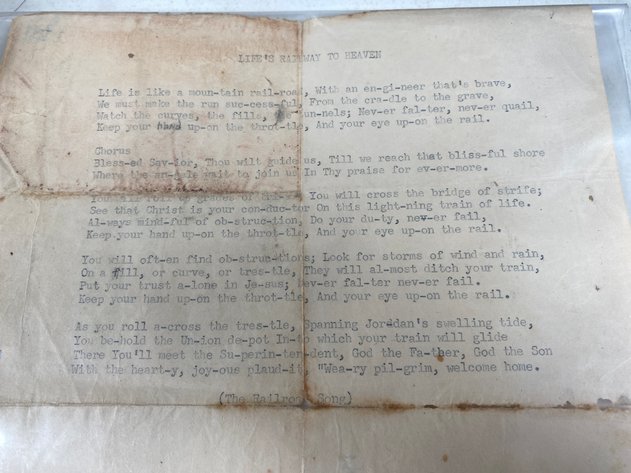 LIFE'S RAILWAY TO HEAVEN
Life is like a moun-tain rail-road, With an en-gi-neer that's brave,
We must make the run suc-cess-ful, From the cra-dle to the grave,
Watch the curves, the fills, tun-nels; Nev-er fal-ter, nev-er quail,
Keep your hand up-on the throt-tle, And your eye up-on the rail.
Chorus
Bless-ed Sav-ior, Thou wilt guide us, Till we reach that bliss-ful shore
Where the an-gels wait to join us In Thy praise for ev-er-more.
You will roll up grades of You will cross the bridge of strife;
See that Christ is your con-duc-tor On this light-ning train of life.
Al-ways mind-ful of ob-struc-tion, Do your du-ty, nev-er fail,
Keep your hand up-on the throt-tle, And your eye up-on the rail.
You will oft-en find ob-struc-tions; Look for storms of wind and rain,
On a fill, or curve, or tres-tle, They will al-most ditch your train,
Put your trust a-lone in Je-sus; Nev-er fal-ter nev-er fail.
Keep your hand up-on the throt-tle, And your eye up-on the rail.
As you roll a-cross the tres-tle, Spanning Jordan's swelling tide,
You be-hold the Un-ion de-pot In-to which your train will glide
There You'll meet the Su-perin-ten-dent, God the Fa-ther, God the Son
With the heart-y, joy-ous plaud-it, "Wea-ry pil-grim, welcome home.
(The Railroad Song)